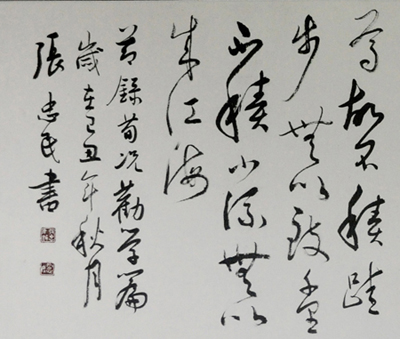 焉故不積跬
步無以致千里
不積小流無以
成江海
節錄荀況勸學篇
歲在己丑年秋月
張忠民書